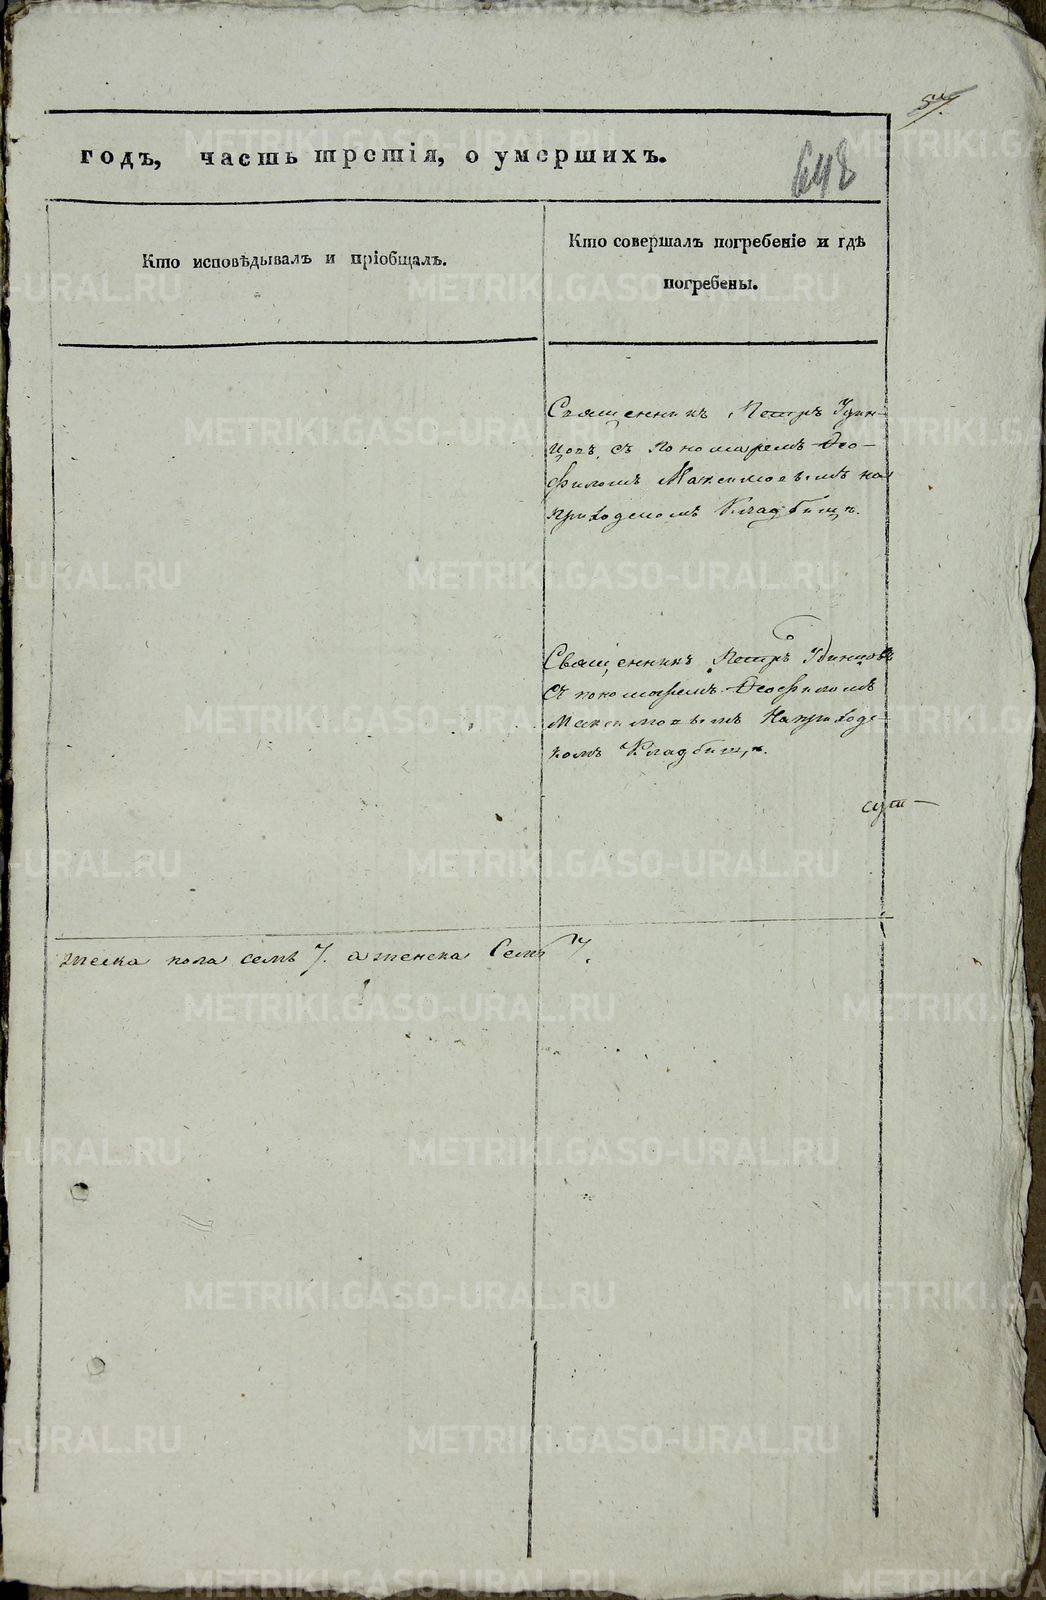 57.
648
годъ, часть третія, о умершихъ.
Кто исповѣдывалъ и пріобщалъ.
Кто совершалъ погребеніе и гдѣ
погребены.
Священникъ Петръ Удин-
цовъ, съ Пономаремъ Ѳео-
филомъ Максимовымъ на
приходскомъ Кладбищѣ.
Священникъ Петръ Удинцовъ
съ пономаремъ Ѳеофиломъ
Максимовымъ На приход-
комъ Кладбищѣ.
жеска пола семь 7. а женска Семь 7.
METRIKI.GASO-URAL.RU